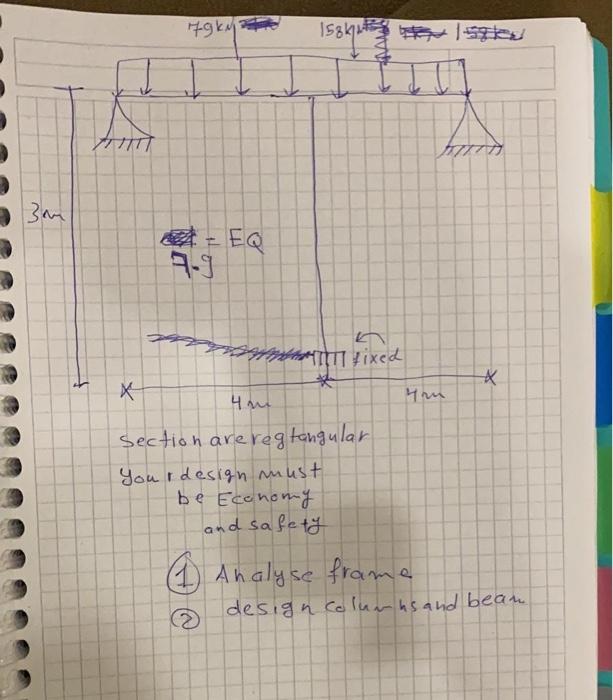 79kN 158kN 158kN
3m
= EQ
7.9
fixed
4m 4m
Section are regtangular
Your design must
be Economy
and safety
1 Analyse frame
2 design columns and beam